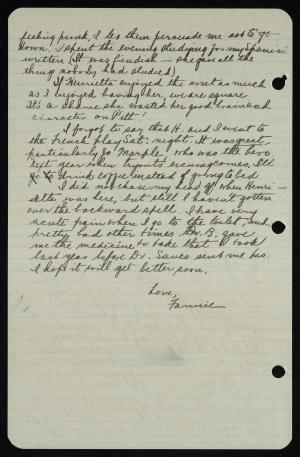 feeling punk, & let them persuade me not to go
down. I spent the evening studying for my Spanish
written (It was fiendish — she gave all the
things nobody had studied)
If Henrietta enjoyed the visit as much
as I enjoyed having her, we are square.
It's a shame she wasted her good brain and
character on Pitt!
I forgot to say that H. and I went to
the French play Sat. night. It was great
particularly Jo Marple, who was the hero.
next year when tryouts evening comes, I'll
go & drink coffee instead of going to bed.
I did not chase my head off when Henri-
etta was here, but still I haven't gotten
over the backward spell. I have very
acute pain when I go to the toilet, and
pretty bad other times. Dr. B. gave
me the medicine to take that I took
last year before Dr. sent me his.
I hope it will get better soon.
Love,
Fannie